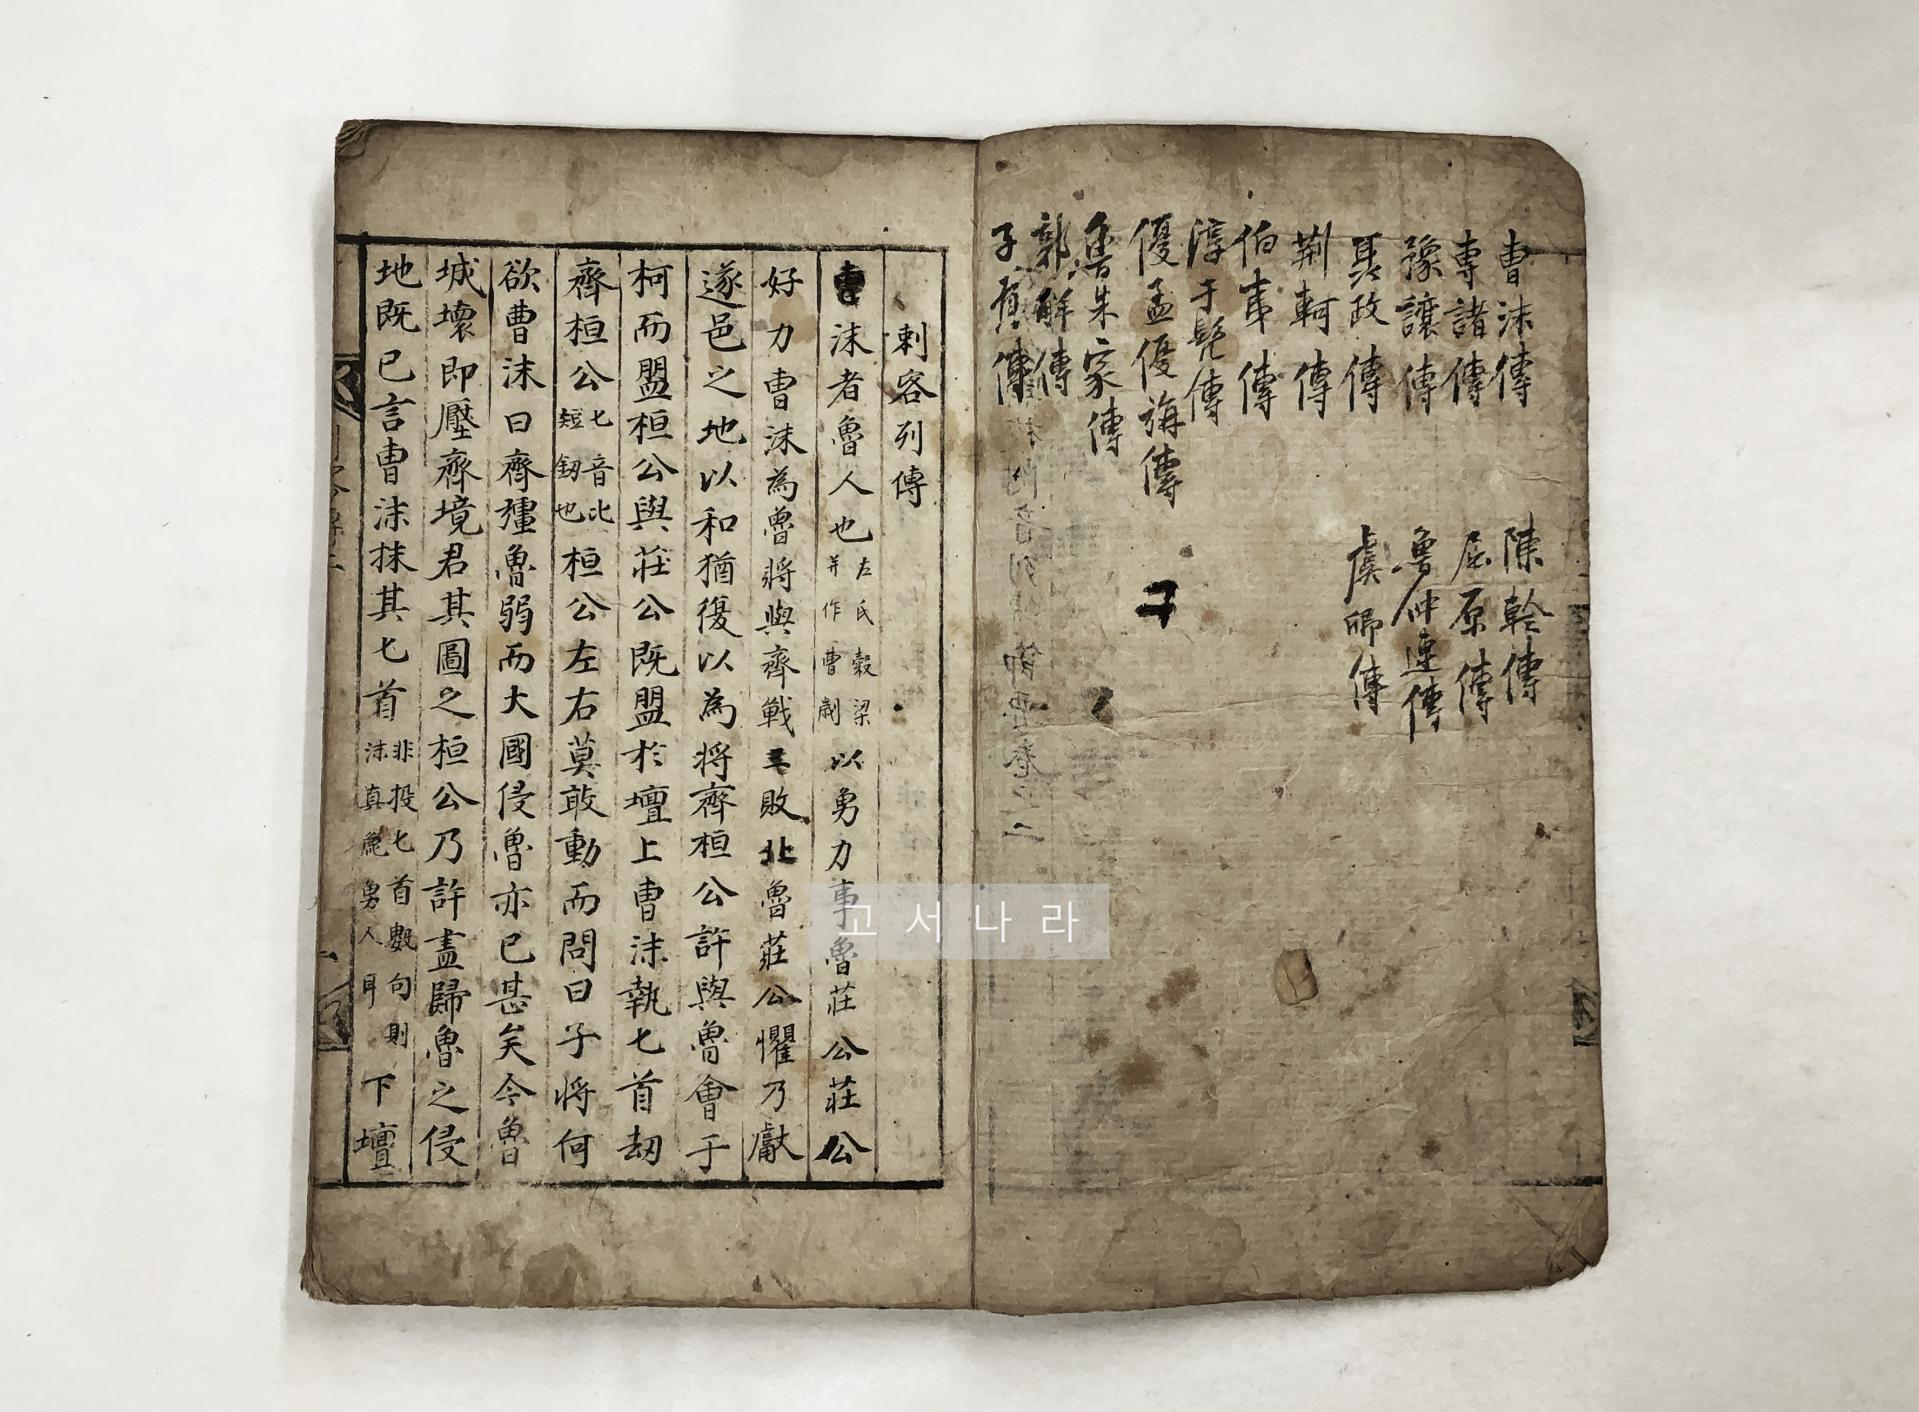 曹沫傳
專諸傳
豫讓傳
聂政傳
荆軻傳
伯夷傳
淳于髡傳
優孟優旃傳
魯朱家傳
郭解傳
子貢傳
陳軫傳
屈原傳
魯仲連傳
虞卿傳
刺客列傳
曹沫者魯人也左氏穀梁并作曹劌以勇力事魯莊公莊公
好力曹沫為魯將與齊戰三敗北魯莊公懼乃獻
遂邑之地以和猶復以為將齊桓公許與魯會于
柯而盟桓公與莊公既盟於壇上曹沫執匕首刧
齊桓公匕音比短劔也桓公左右莫敢動而問曰子將何
欲曹沫曰齊彊魯弱而大國侵魯亦已甚矣今魯
城壞即壓齊境君其圖之桓公乃許盡歸魯之侵
地既已言曹沫抹其匕首非投匕首數句則沫真麁勇人耳下壇
고서나라